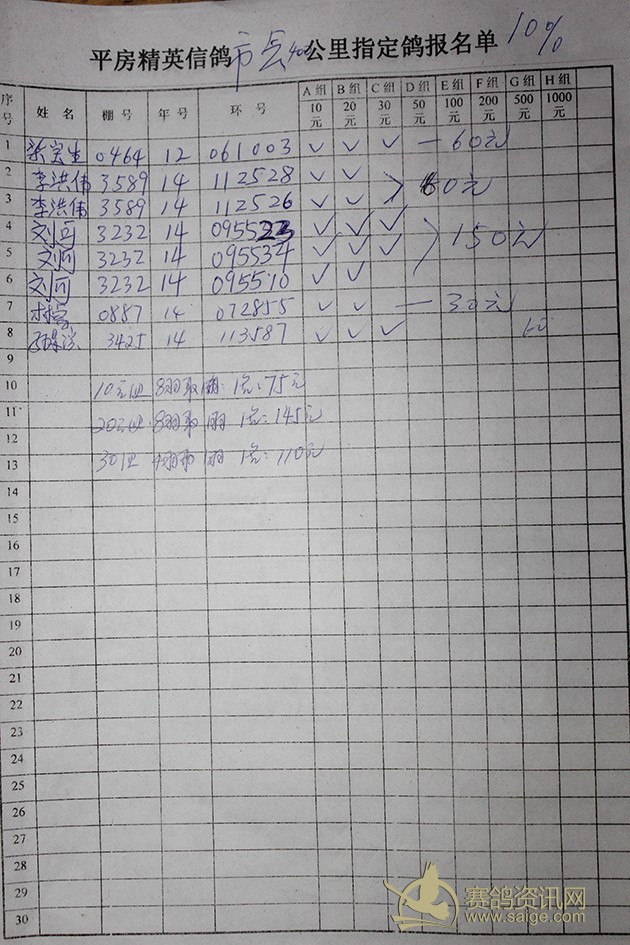 平房精英信鸽市县400公里指定鸽报名单 10%
序号 姓名 棚号 年号 环号 A组10元 B组20元 C组30元 D组50元 E组100元 F组200元 G组500元 H组1000元
1 梁宝生 0464 12 061003 ✓ ✓ ✓ — 60元
2 李洪伟 3589 14 112528 ✓ ✓
3 李洪伟 3589 14 112526 ✓ ✓ 60元
4 刘可 3232 14 095523 ✓ ✓ ✓
5 刘可 3232 14 095534 ✓ ✓ ✓ 150元
6 刘可 3232 14 095510 ✓ ✓
7 0887 14 072855 ✓ ✓ — 30元
8 3425 14 113587 ✓ ✓ ✓ 60
9
10 10元 8羽取1羽 1名:75元
11 20元 8羽取1羽 1名:145元
12
13 30 4羽取1羽 1名:110元
14
15
16
17
18
19
20
21
22
23
24
25
26
27
28
29
30
赛鸽资讯网
www.saige.com